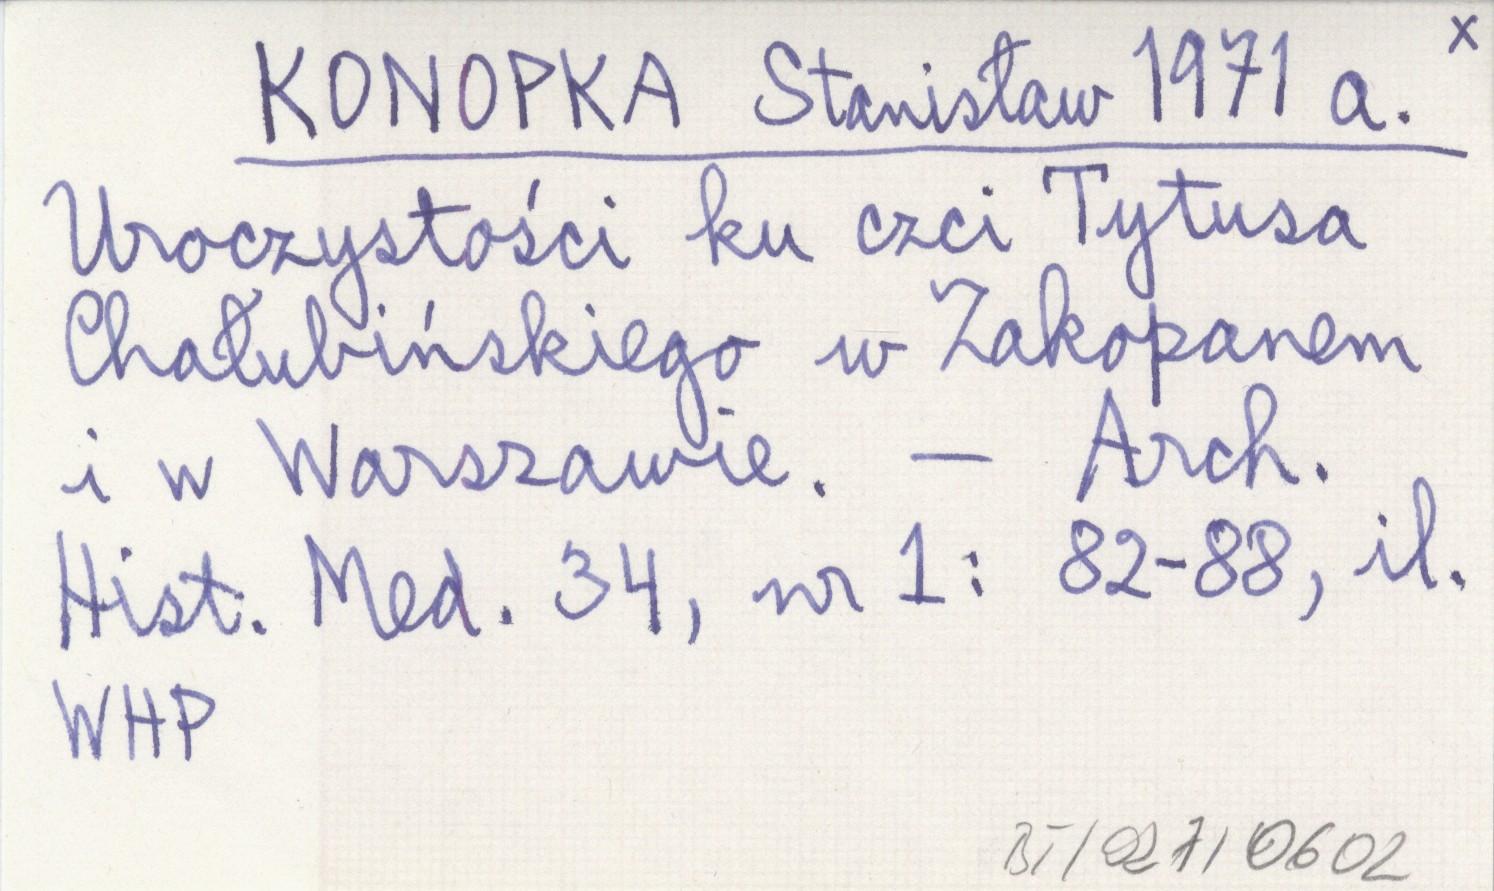 x
KONOPKA Stanisław 1971 a.
Uroczystości ku czci Tytusa
Chałubińskiego w Zakopanem
i w Warszawie. — Arch.
Hist. Med. 34, nr 1: 82-88, il.
WHP
BT/027/0602